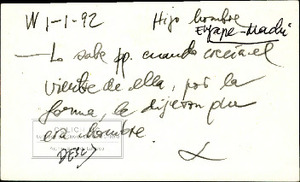 W 1-1-92 Hijo hombre
Engape-Madri
— Lo sabe pp. cuando crecía el
vientre de ella, por la
forma, le dijeron que
era hombre.